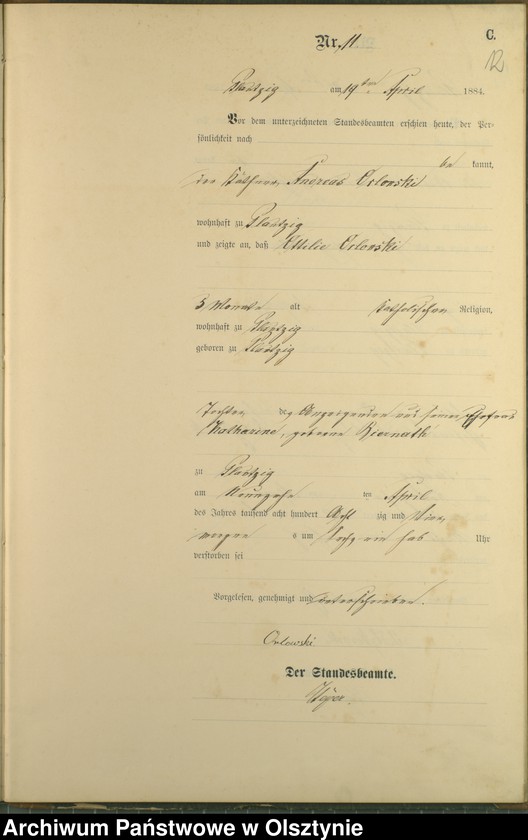 C.
Nr. 11.
12
am 19ten April 1884.
Vor dem unterzeichneten Standesbeamten erschien heute, der Per-
sönlichkeit nach
be kannt,
der Käthner Andreas Orlowski
wohnhaft zu
und zeigte an, daß Ottilie Orlowski
3 Monate alt katholischer Religion,
wohnhaft zu
geboren zu
Tochter des Anzeigenden und seiner Ehefrau
Katharine, geborene Biernath
zu
am Neunzehn ten April
des Jahres tausend acht hundert Acht zig und Vier,
morgen s um sechs ein halb Uhr
verstorben sei
Vorgelesen, genehmigt und unterschrieben.
Orlowski
Der Standesbeamte.
Archiwum Państwowe w Olsztynie